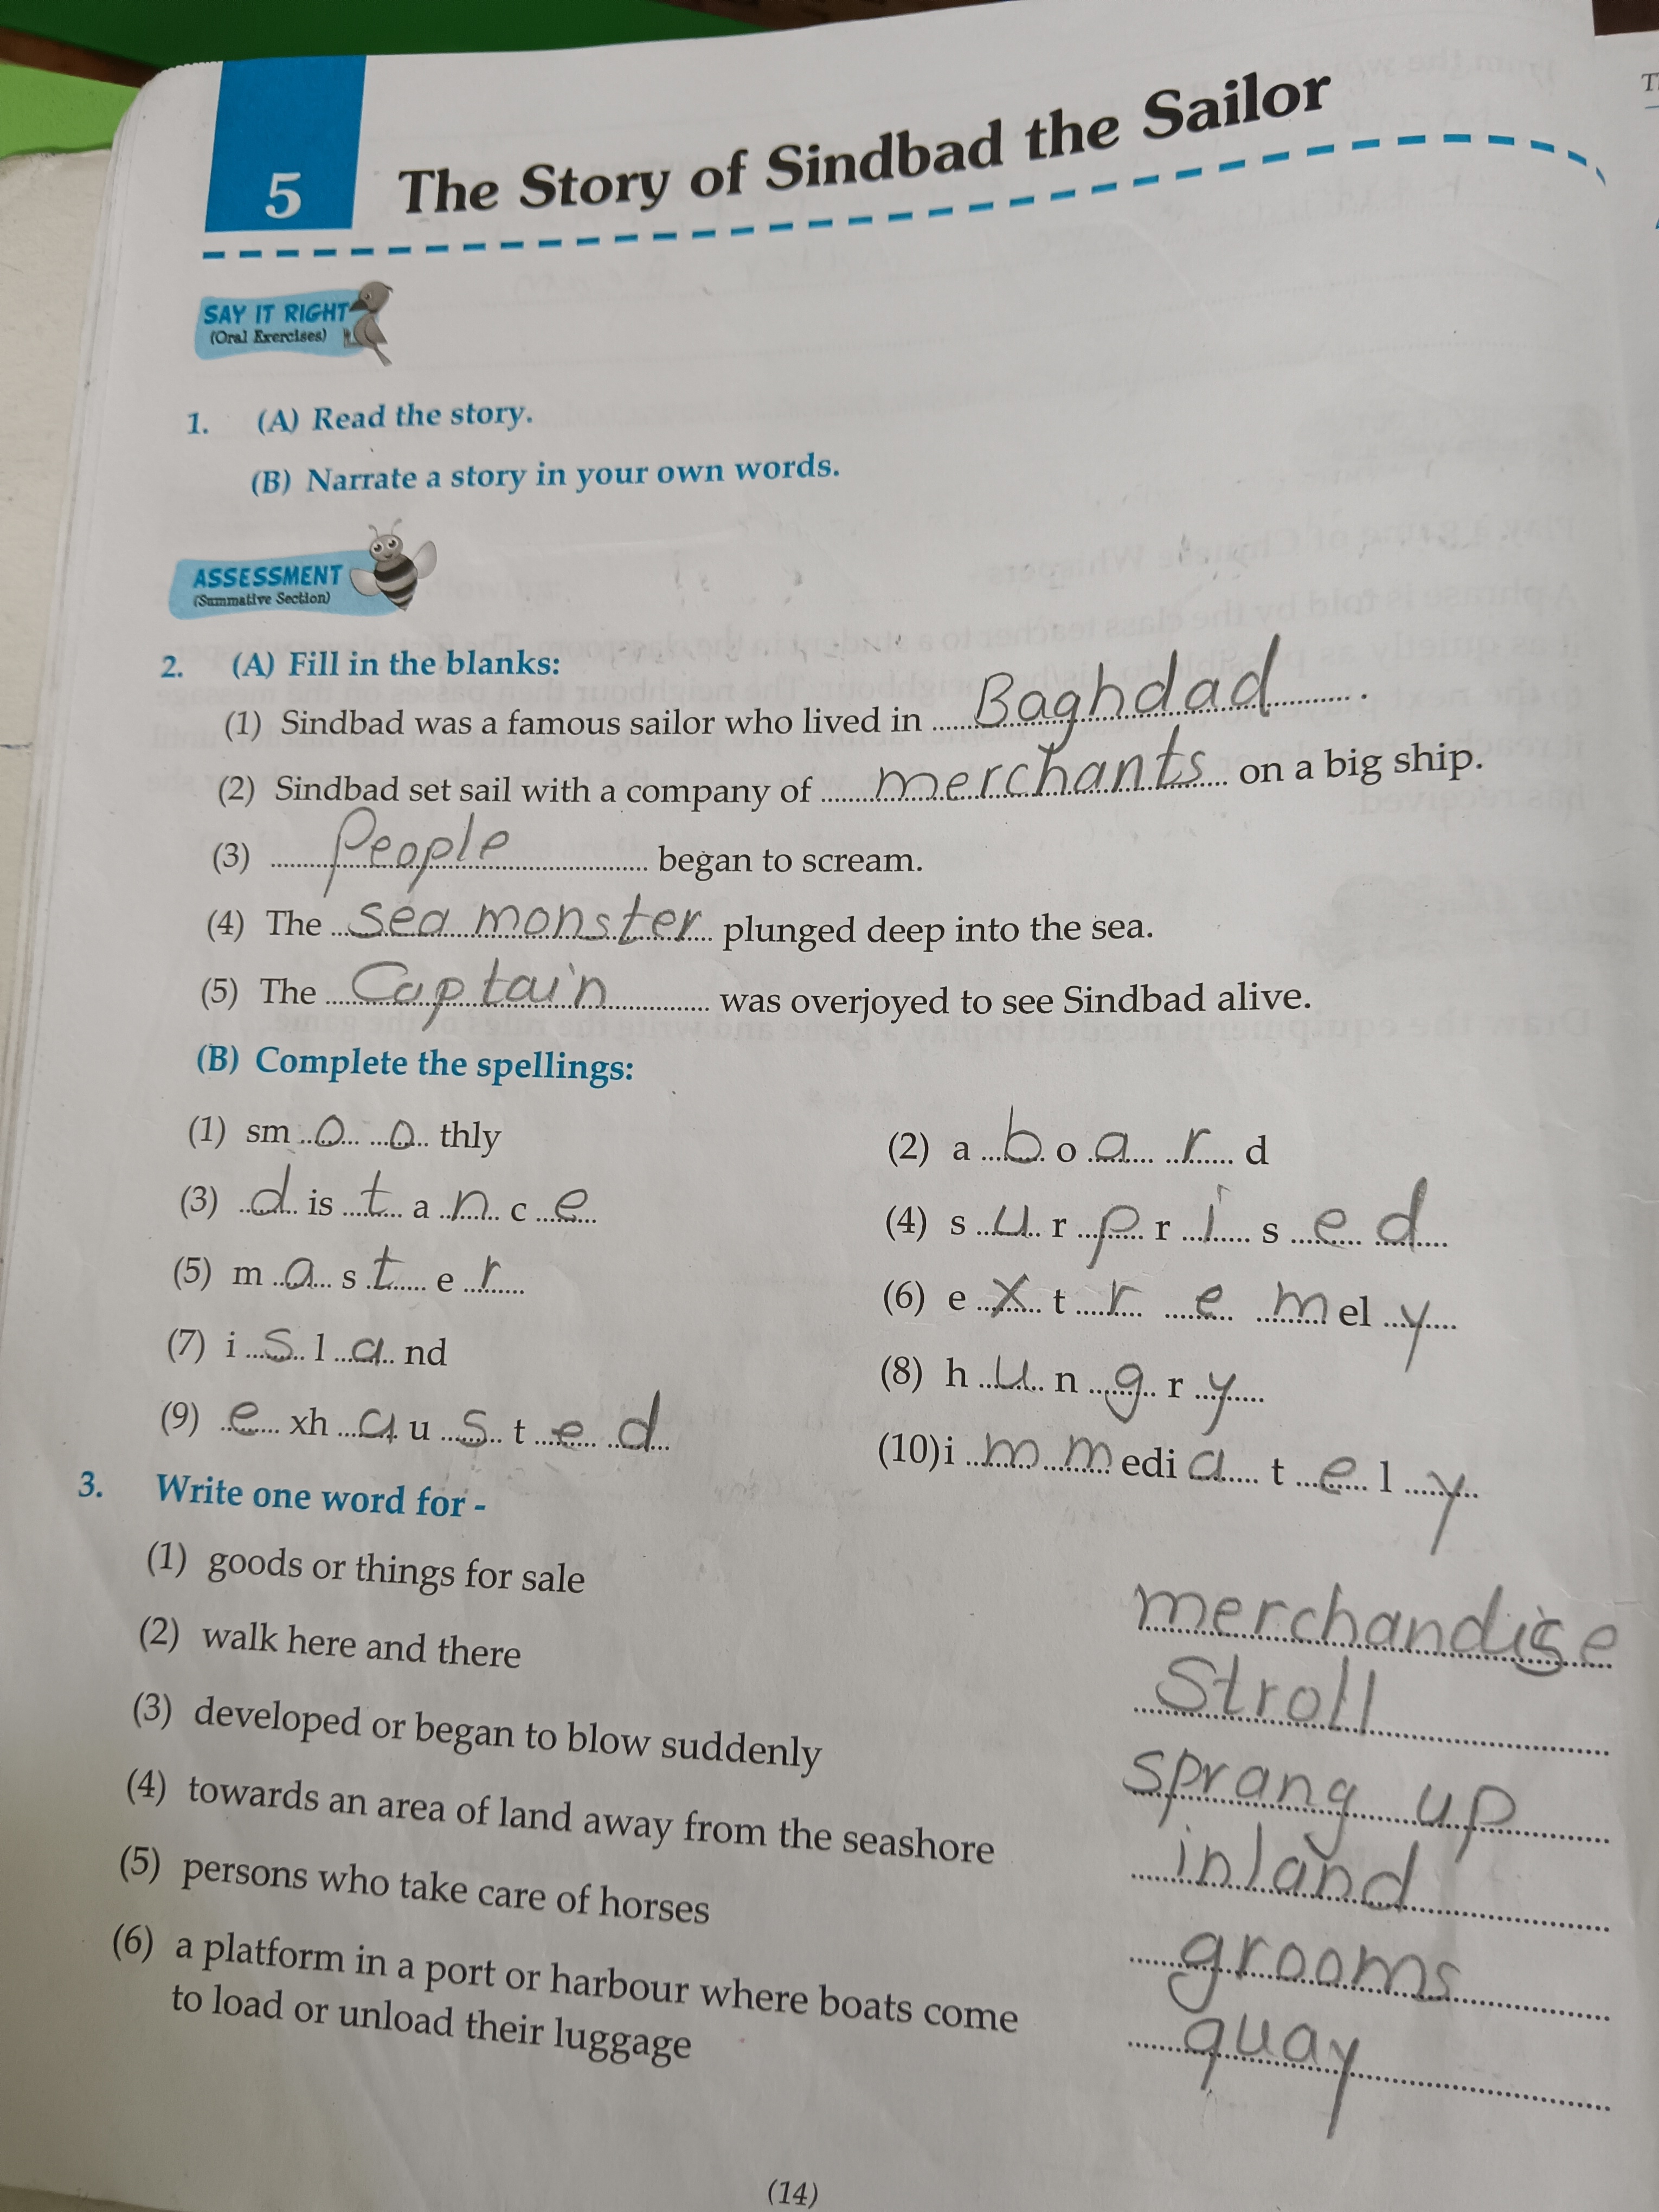 5 The Story of Sindbad the Sailor
SAY IT RIGHT
(Oral Exercises)
1. (A) Read the story.
(B) Narrate a story in your own words.
ASSESSMENT
(Summative Section)
2. (A) Fill in the blanks:
(1) Sindbad was a famous sailor who lived in Baghdad.
(2) Sindbad set sail with a company of merchants on a big ship.
(3) People began to scream.
(4) The sea monster plunged deep into the sea.
(5) The Captain was overjoyed to see Sindbad alive.
(B) Complete the spellings:
(1) sm o o thly (2) a b o a r d
(3) d is t a n c e (4) s u r p r i s e d
(5) m a s t e r (6) e x t r e m el y
(7) i s l a nd (8) h u n g r y
(9) e xh a u s t e d (10) i m m edi a t e l y
3. Write one word for -
(1) goods or things for sale merchandise
(2) walk here and there Stroll
(3) developed or began to blow suddenly sprang up
(4) towards an area of land away from the seashore inland
(5) persons who take care of horses grooms
(6) a platform in a port or harbour where boats come
to load or unload their luggage quay
(14)